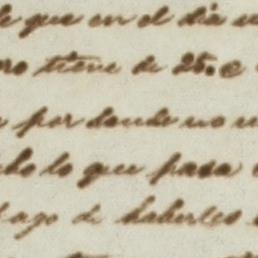 que en el dia
tiene de 25.
por donde no
lo que pasa
pago de haberles